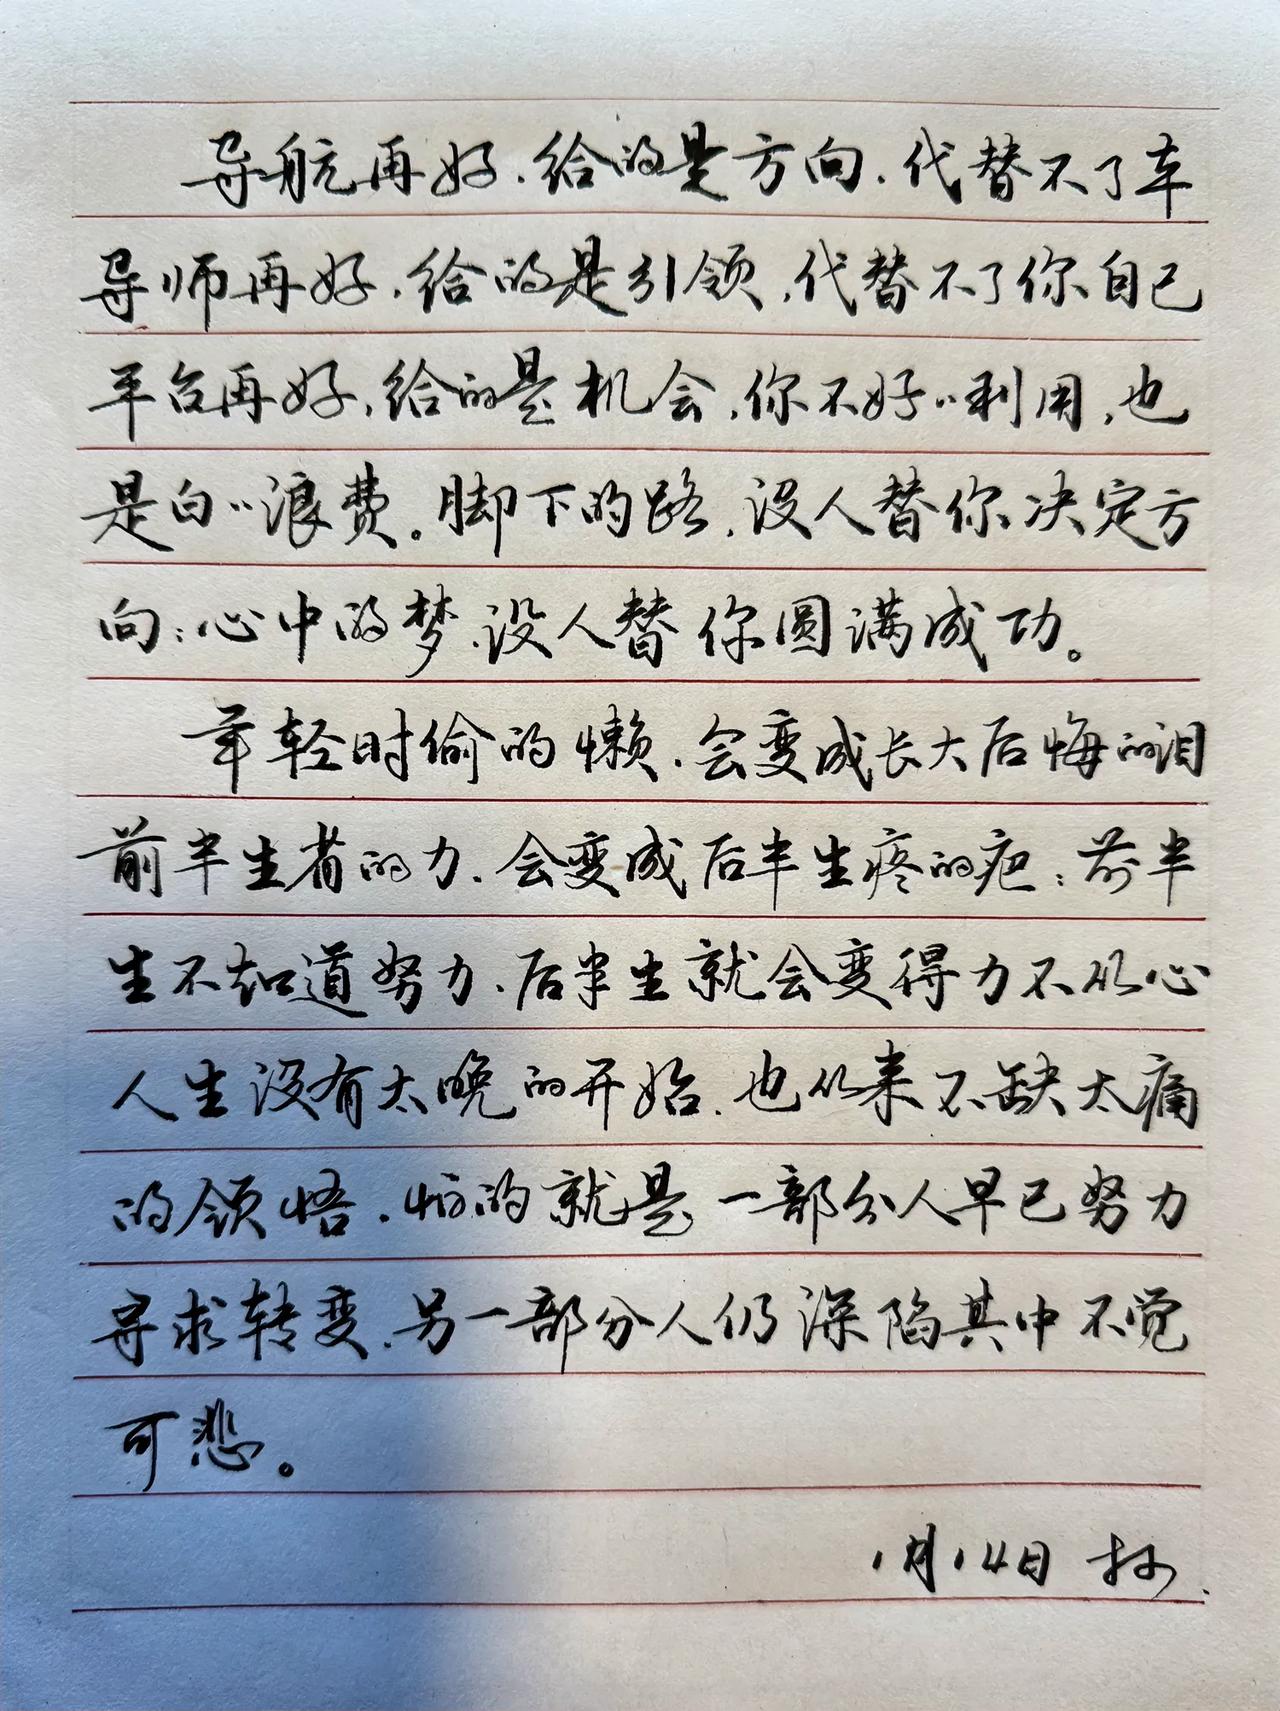 导航再好，给的是方向，代替不了车
导师再好，给的是引领，代替不了你自己
平台再好，给的是机会，你不好〃利用，也
是白〃浪费。脚下的路，没人替你决定方
向；心中的梦，没人替你圆满成功。
年轻时偷的懒，会变成长大后悔的泪
前半生省的力，会变成后半生疼的疤；前半
生不知道努力，后半生就会变得力不从心
人生没有太晚的开始，也从来不缺太痛
的领悟，怕的就是一部分人早已努力
寻求转变，另一部分人仍深陷其中不觉
可悲。
1月14日